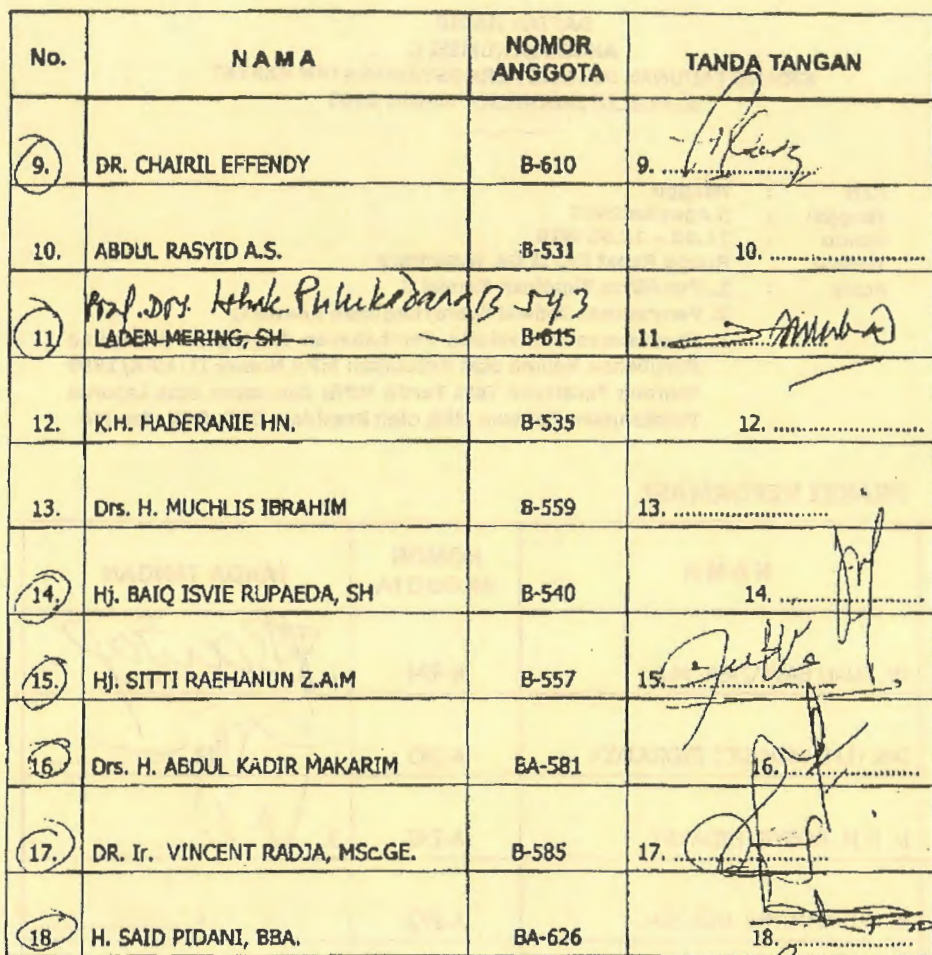 No. NAMA NOMOR ANGGOTA TANDA TANGAN
9. DR. CHAIRIL EFFENDY B-610 9. ..................
10. ABDUL RASYID A.S. B-531 10. ..................
Prof. Drs. B-543
11 LADEN MERING, SH B-615 11.
12. K.H. HADERANIE HN. B-535 12. ..................
13. Drs. H. MUCHLIS IBRAHIM B-559 13. ..................
14. Hj. BAIQ ISVIE RUPAEDA, SH B-540 14. ..................
15. Hj. SITTI RAEHANUN Z.A.M B-557 15. ..................
16. Drs. H. ABDUL KADIR MAKARIM BA-581 16. ..................
17. DR. Ir. VINCENT RADJA, MSc.GE. B-585 17. ..................
18. H. SAID PIDANI, BBA. BA-626 18. ..................